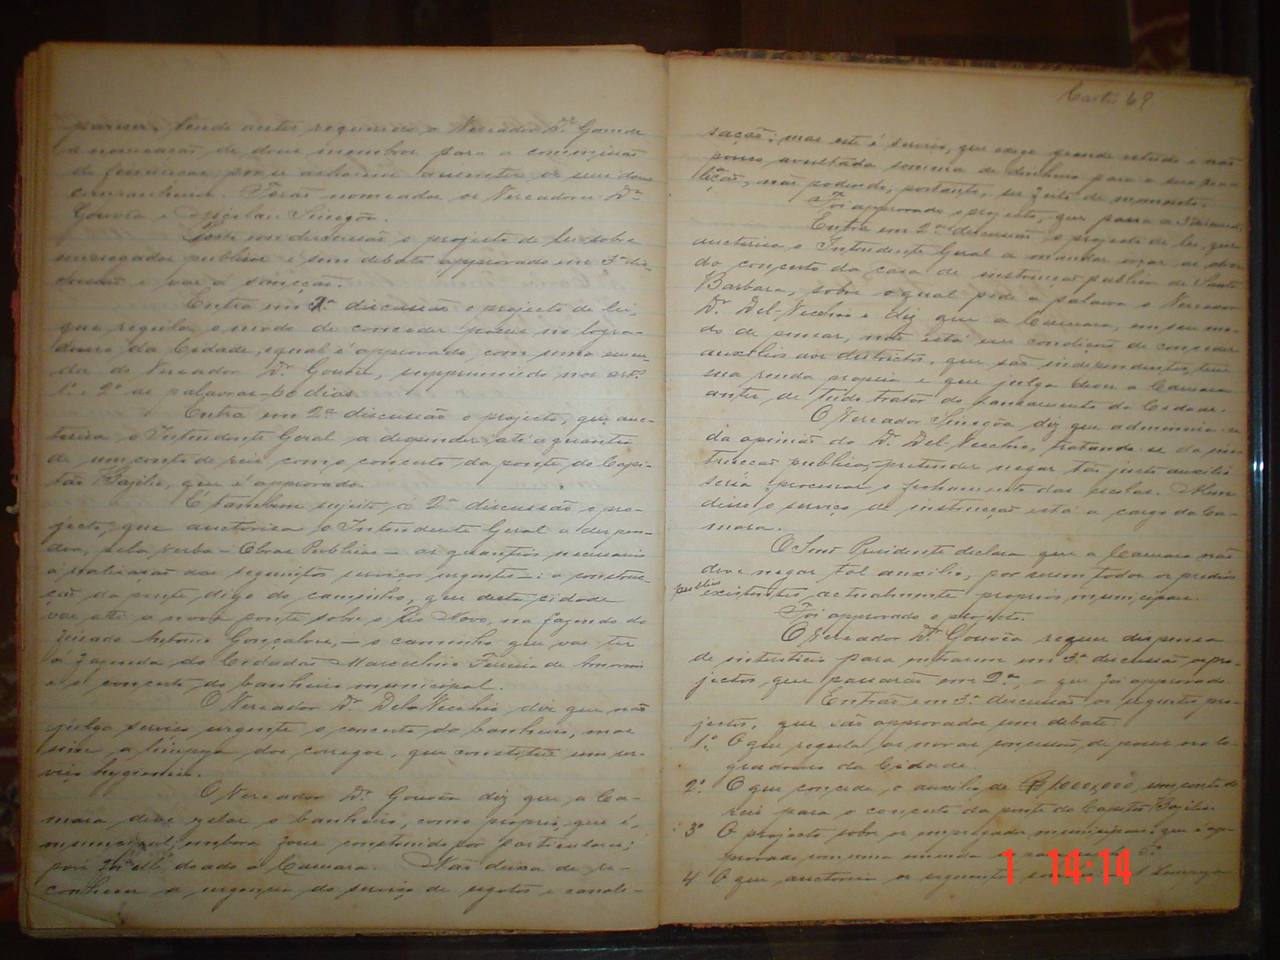 parecer, tendo antes requerido o Vereador Dr. Gouvêa
a nomeação de dous membros para a commissão
de finanças por se acharem ausentes os seus dous
companheiros. Forão nomeados os Vereadores Dr.
Gouvêa e Simeão.
Posto em discussão o projecto de lei sobre
empregados publicos é sem debate approvado em 3ª dis-
cussão e vae á sancção.
Entra em 1ª discussão o projecto de lei,
que regula o modo de conceder posses no logra-
douro da Cidade, o qual é approvado com uma emen-
da do Vereador Dr. Gouvêa, supprimindo nos arts.
1º e 2º as palavras - 60 dias.
Entra em 2ª discussão o projecto, que auc-
torisa o Intendente Geral a despender até a quantia
de um conto de reis com o concerto da ponte do Capi-
tão Bazilio, que é approvado.
É tambem sujeito á 2ª discussão o pro-
jecto, que auctorisa o Intendente Geral a despen-
der, pela verba - Obras Publicas - as quantias necessarias
á realisação dos seguintes serviços urgentes: a construc-
ção da ponte digo do caminho, que desta cidade
vae até a nova ponte sobre o Rio Novo, na fazenda do
finado Antonio Gonçalves, - o caminho que vae ter
á fazenda do Cidadão Marcellino Ferreira de Amorim
e o concerto do banheiro municipal.
O Vereador Dr. Del-Vecchio diz que não
julga serviço urgente o concerto do banheiro, mas
sim a limpeza dos corregos, que constitue um ser-
viço hygienico.
O Vereador Dr. Gouvêa diz que a Ca-
mara deve zelar o banheiro, como proprio, que é,
municipal, embora fosse construido por particulares;
pois foi elle doado a Camara. Não deixa de re-
conhecer a urgencia do serviço de esgotos e canali-
Castro 69
sação; mas este é serviço, que exige grande estudo e não
pouco avultada somma de dinheiro para a sua rea-
lisação, não podendo, portanto, ser feito de momento.
Foi approvado o projecto, que passa a 3ª discussão.
Entra em 2ª discussão o projecto de lei, que
auctorisa o Intendente Geral a mandar orçar as obras
do concerto da casa de instrucção publica de Santa
Barbara, sobre o qual pede a palavra o Vereador
Dr. Del-Vecchio e diz que a Camara, em seu mo-
do de pensar, não está em condição de conceder
auxilios aos districtos, que são independentes, teem
sua renda propria e que julga dever a Camara
antes de tudo tratar do saneamento da Cidade.
O Vereador Simeão diz que admira-se
da opinião do Dr. Del Vecchio, tratando-se da ins-
trucção publica, pretender negar tão justo auxilio
seria procurar o fechamento das escolas. Alem
disso o serviço de instrucção está a cargo da Ca-
mara.
O Snr. Presidente declara que a Camara não
deve negar tal auxilio, por serem todos os predios
publicos existentes actualmente proprios municipaes.
Foi approvado o projecto.
O Vereador Dr. Gouvêa requer dispensa
de intersticio para entrarem em 3ª discussão os pro-
jectos que passarão em 2ª, o que foi approvado.
Entrão em 3ª discussão os seguintes pro-
jectos, que são approvados sem debate.
1º O que regula as novas concessões de posses no lo-
gradouro da Cidade.
2º O que concede o auxilio de 1:000,000 um conto de
reis para o concerto da ponte do Capitão Bazilio.
3º O projecto sobre os empregados municipaes, que é ap-
provado com uma emenda
4º O que auctorisa os seguintes limpeza
1 14:14